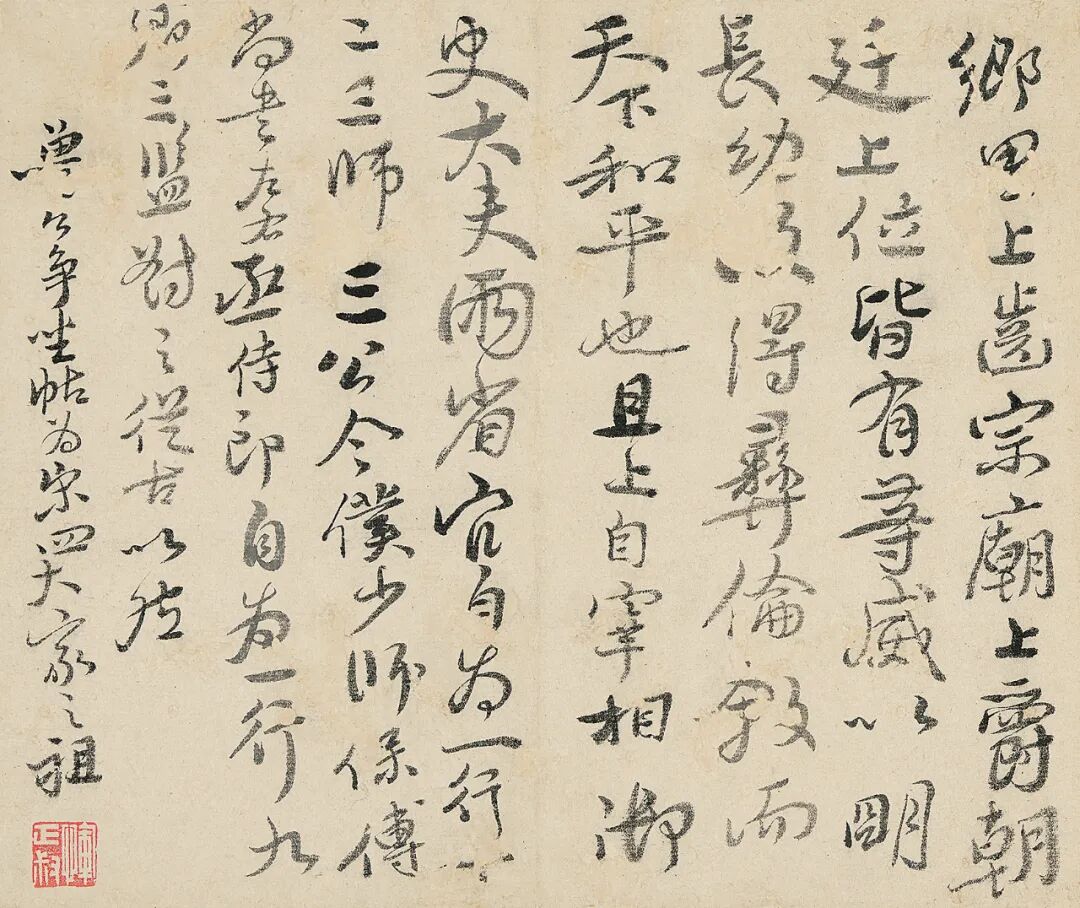 鄉里上齒宗廟上爵朝
廷上位皆有等威以明
長幼以得彝倫敘而
天下和平也且上自宰相御
史大夫兩省官自為一行
二三師三公令僕少師保傅
尚書左右丞侍郎自為一行九
卿三監對之從古以然
魯公爭坐帖為宋四大家之祖
惲正叔